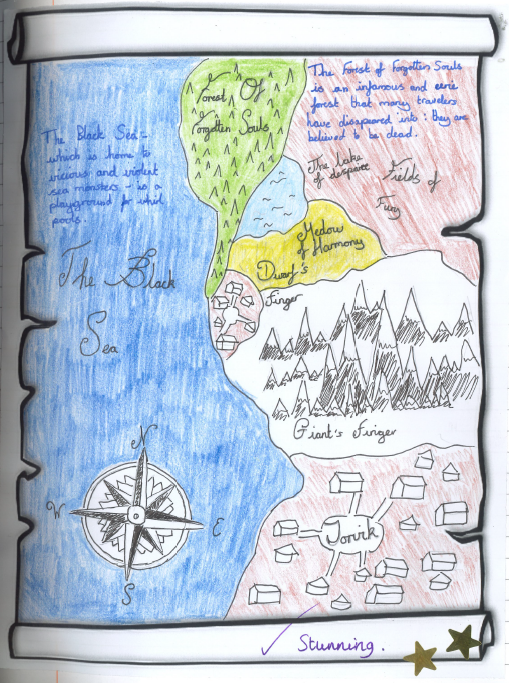 The Forest of Forgotten Souls
is an infamous and eerie
forest that many travelers
have disapeared into: they are
believed to be dead.
Forest Of
Forgotten Souls
The Black Sea -
which is home to
vicious and violent
sea monsters - is a
playground for whirl
pools.
The lake
of despaire
Fields of
Fury
Medow
of Harmony
The Black
Sea
Dwarf's
Finger
Giant's Finger
N
W
E
S
Torvik
✓ Stunning.